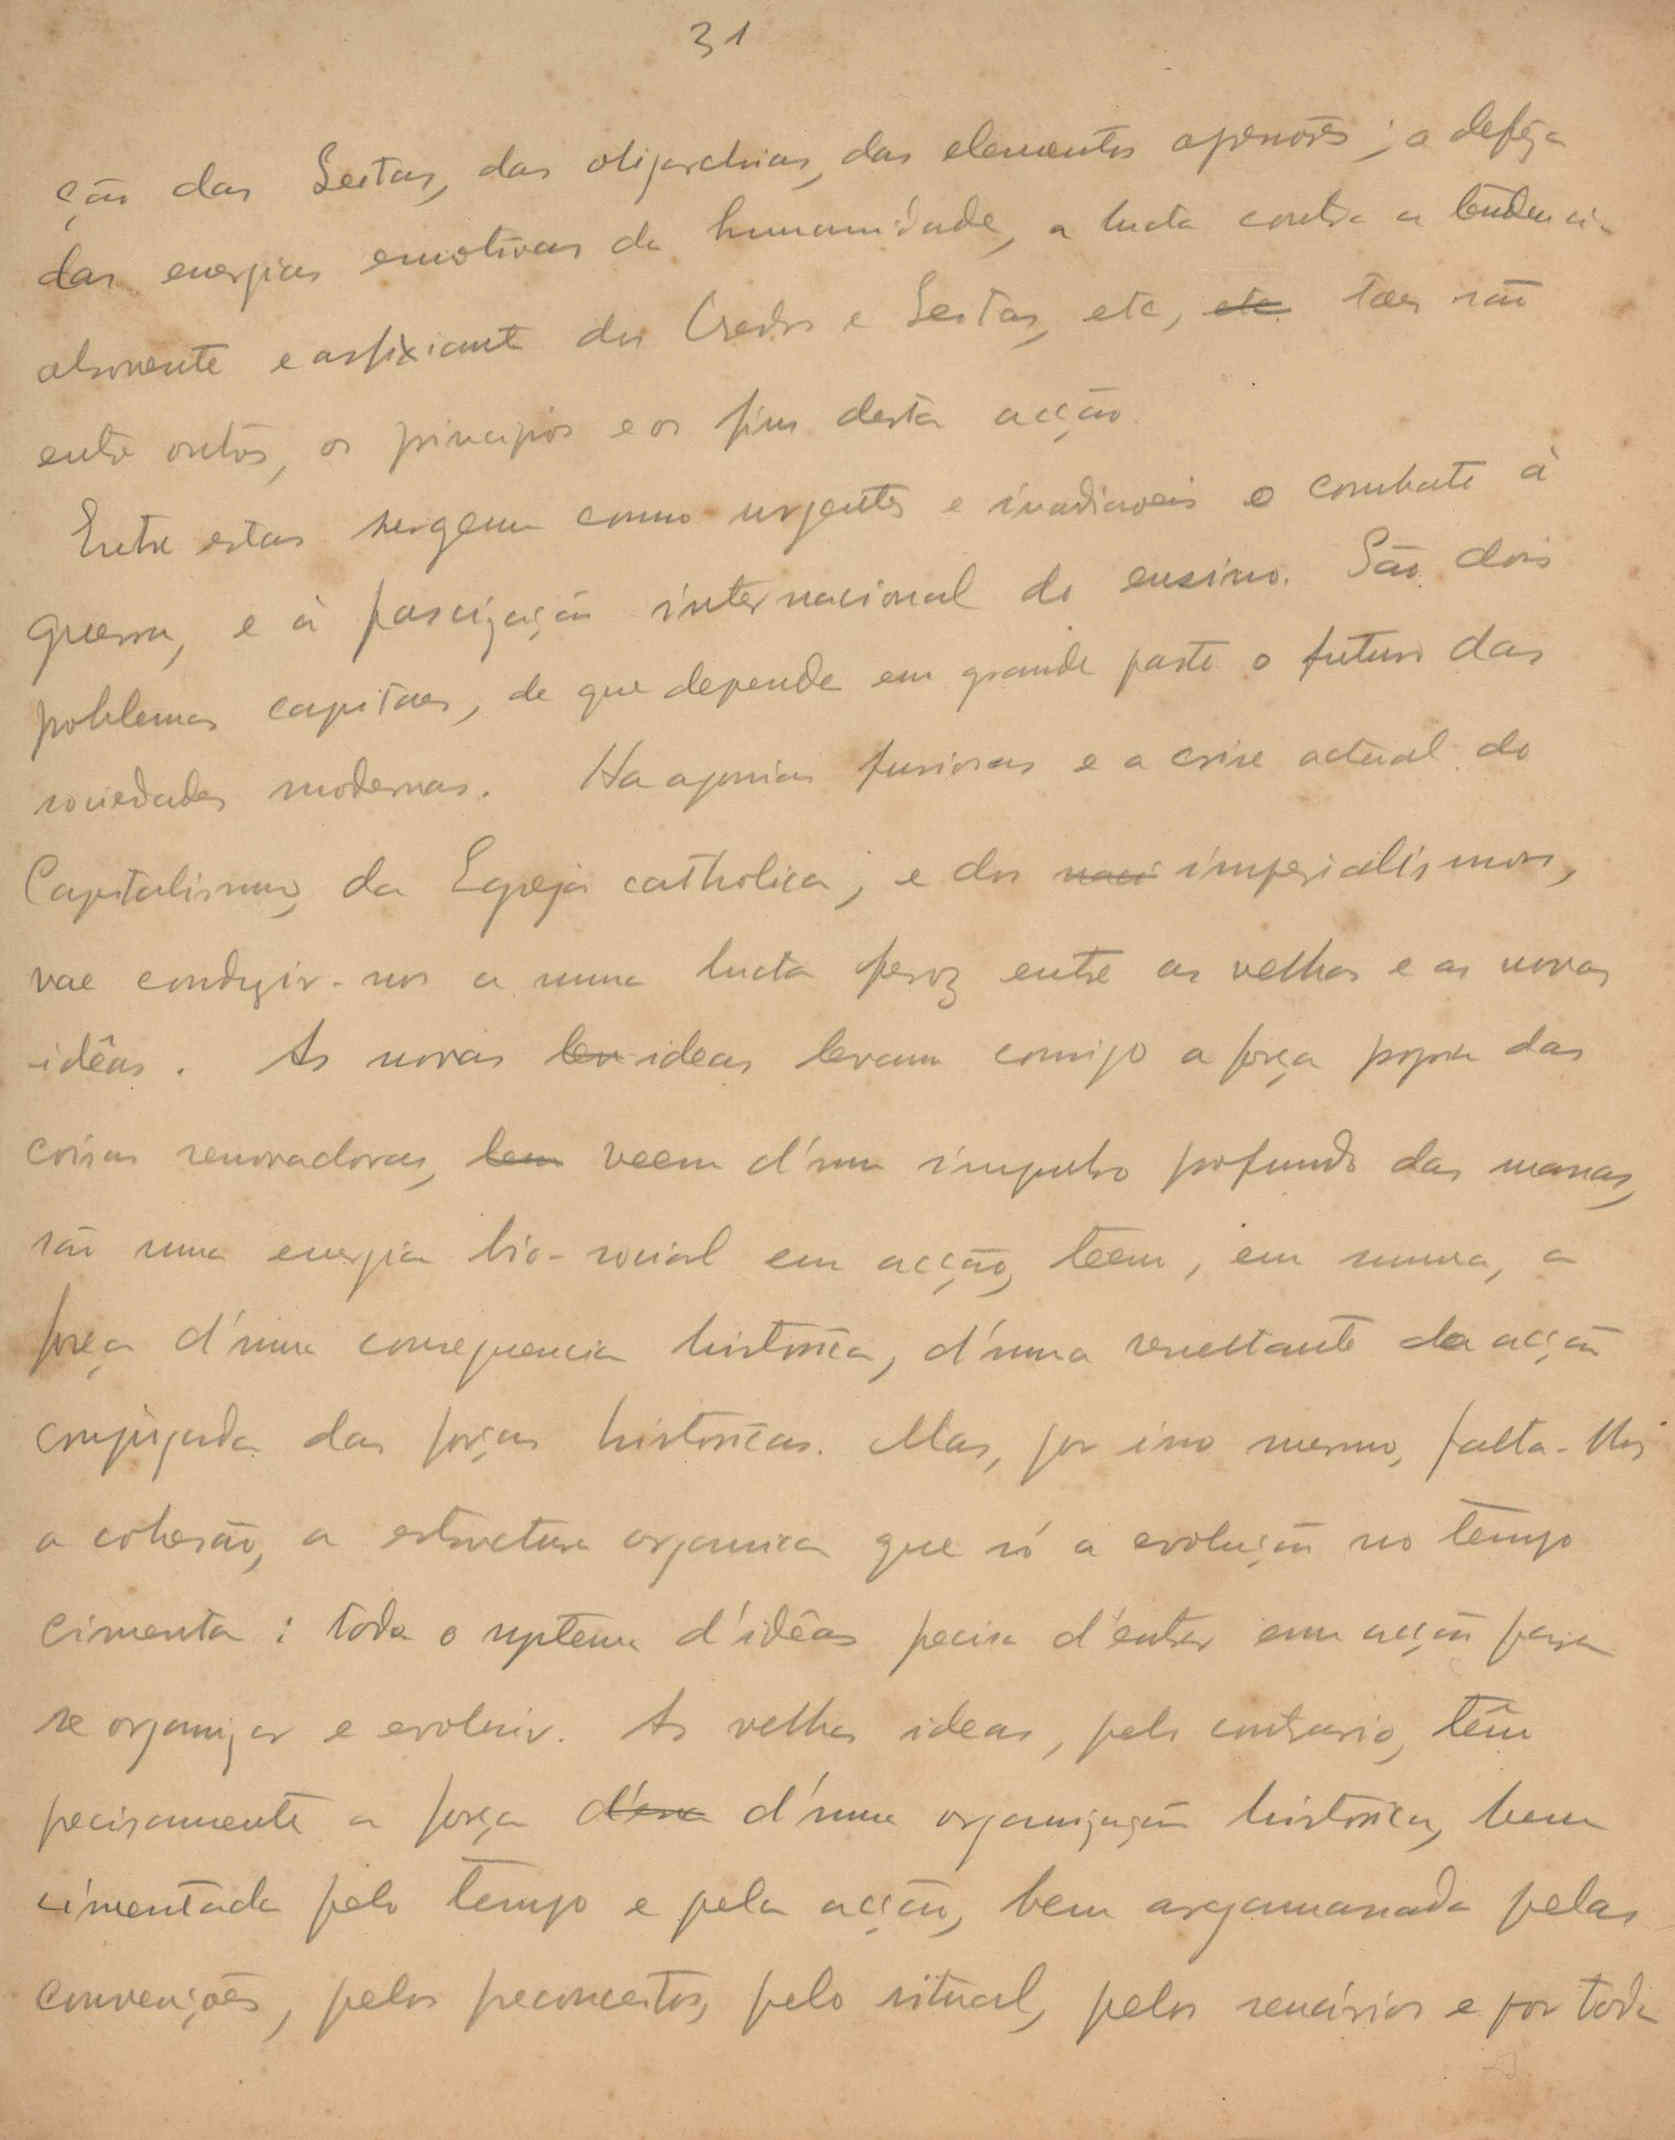 31
ção das Seitas, das oligarchias, dos elementos opressores; a defeza
das energias emotivas da humanidade, a lucta contra a tendencia
absorvente e asfixiante dos Credos e Seitas, etc, etc taes são
entre outros, os principios e os fins desta acção.
Entre estas surgem como urgentes e inadiaveis o combate á
guerra, e á fascização internacional do ensino. São dois
problemas capitaes, de que depende em grande parte o futuro das
sociedades modernas. Ha agonias furiosas e a crise actual do
Capitalismo, da Egreja catholica, e dos naci imperialismos,
vae conduzir-nos a uma lucta feroz entre as velhas e as novas
idêas. As novas lev ideas levam comsigo a força propria das
coisas renovadoras, tem veem d'um impulso profundo das massas,
são uma energia bio-social em acção, teem, em summa, a
força d'uma consequencia historica, d'uma resultante da acção
conjugada das forças historicas. Mas, por isso mesmo, falta-lhes
a cohesão, a estructura organica que só a evolução no tempo
cimenta: todo o systema d'idêas precisa d'entrar em acção para
se organizar e evoluir. As velhas ideas, pelo contrario, têm
precisamente a força d'uma organização historica, bem
cimentada pelo tempo e pela acção, bem argamassada pelas
convenções, pelos preconceitos, pelo ritual, pelos scenários e por toda